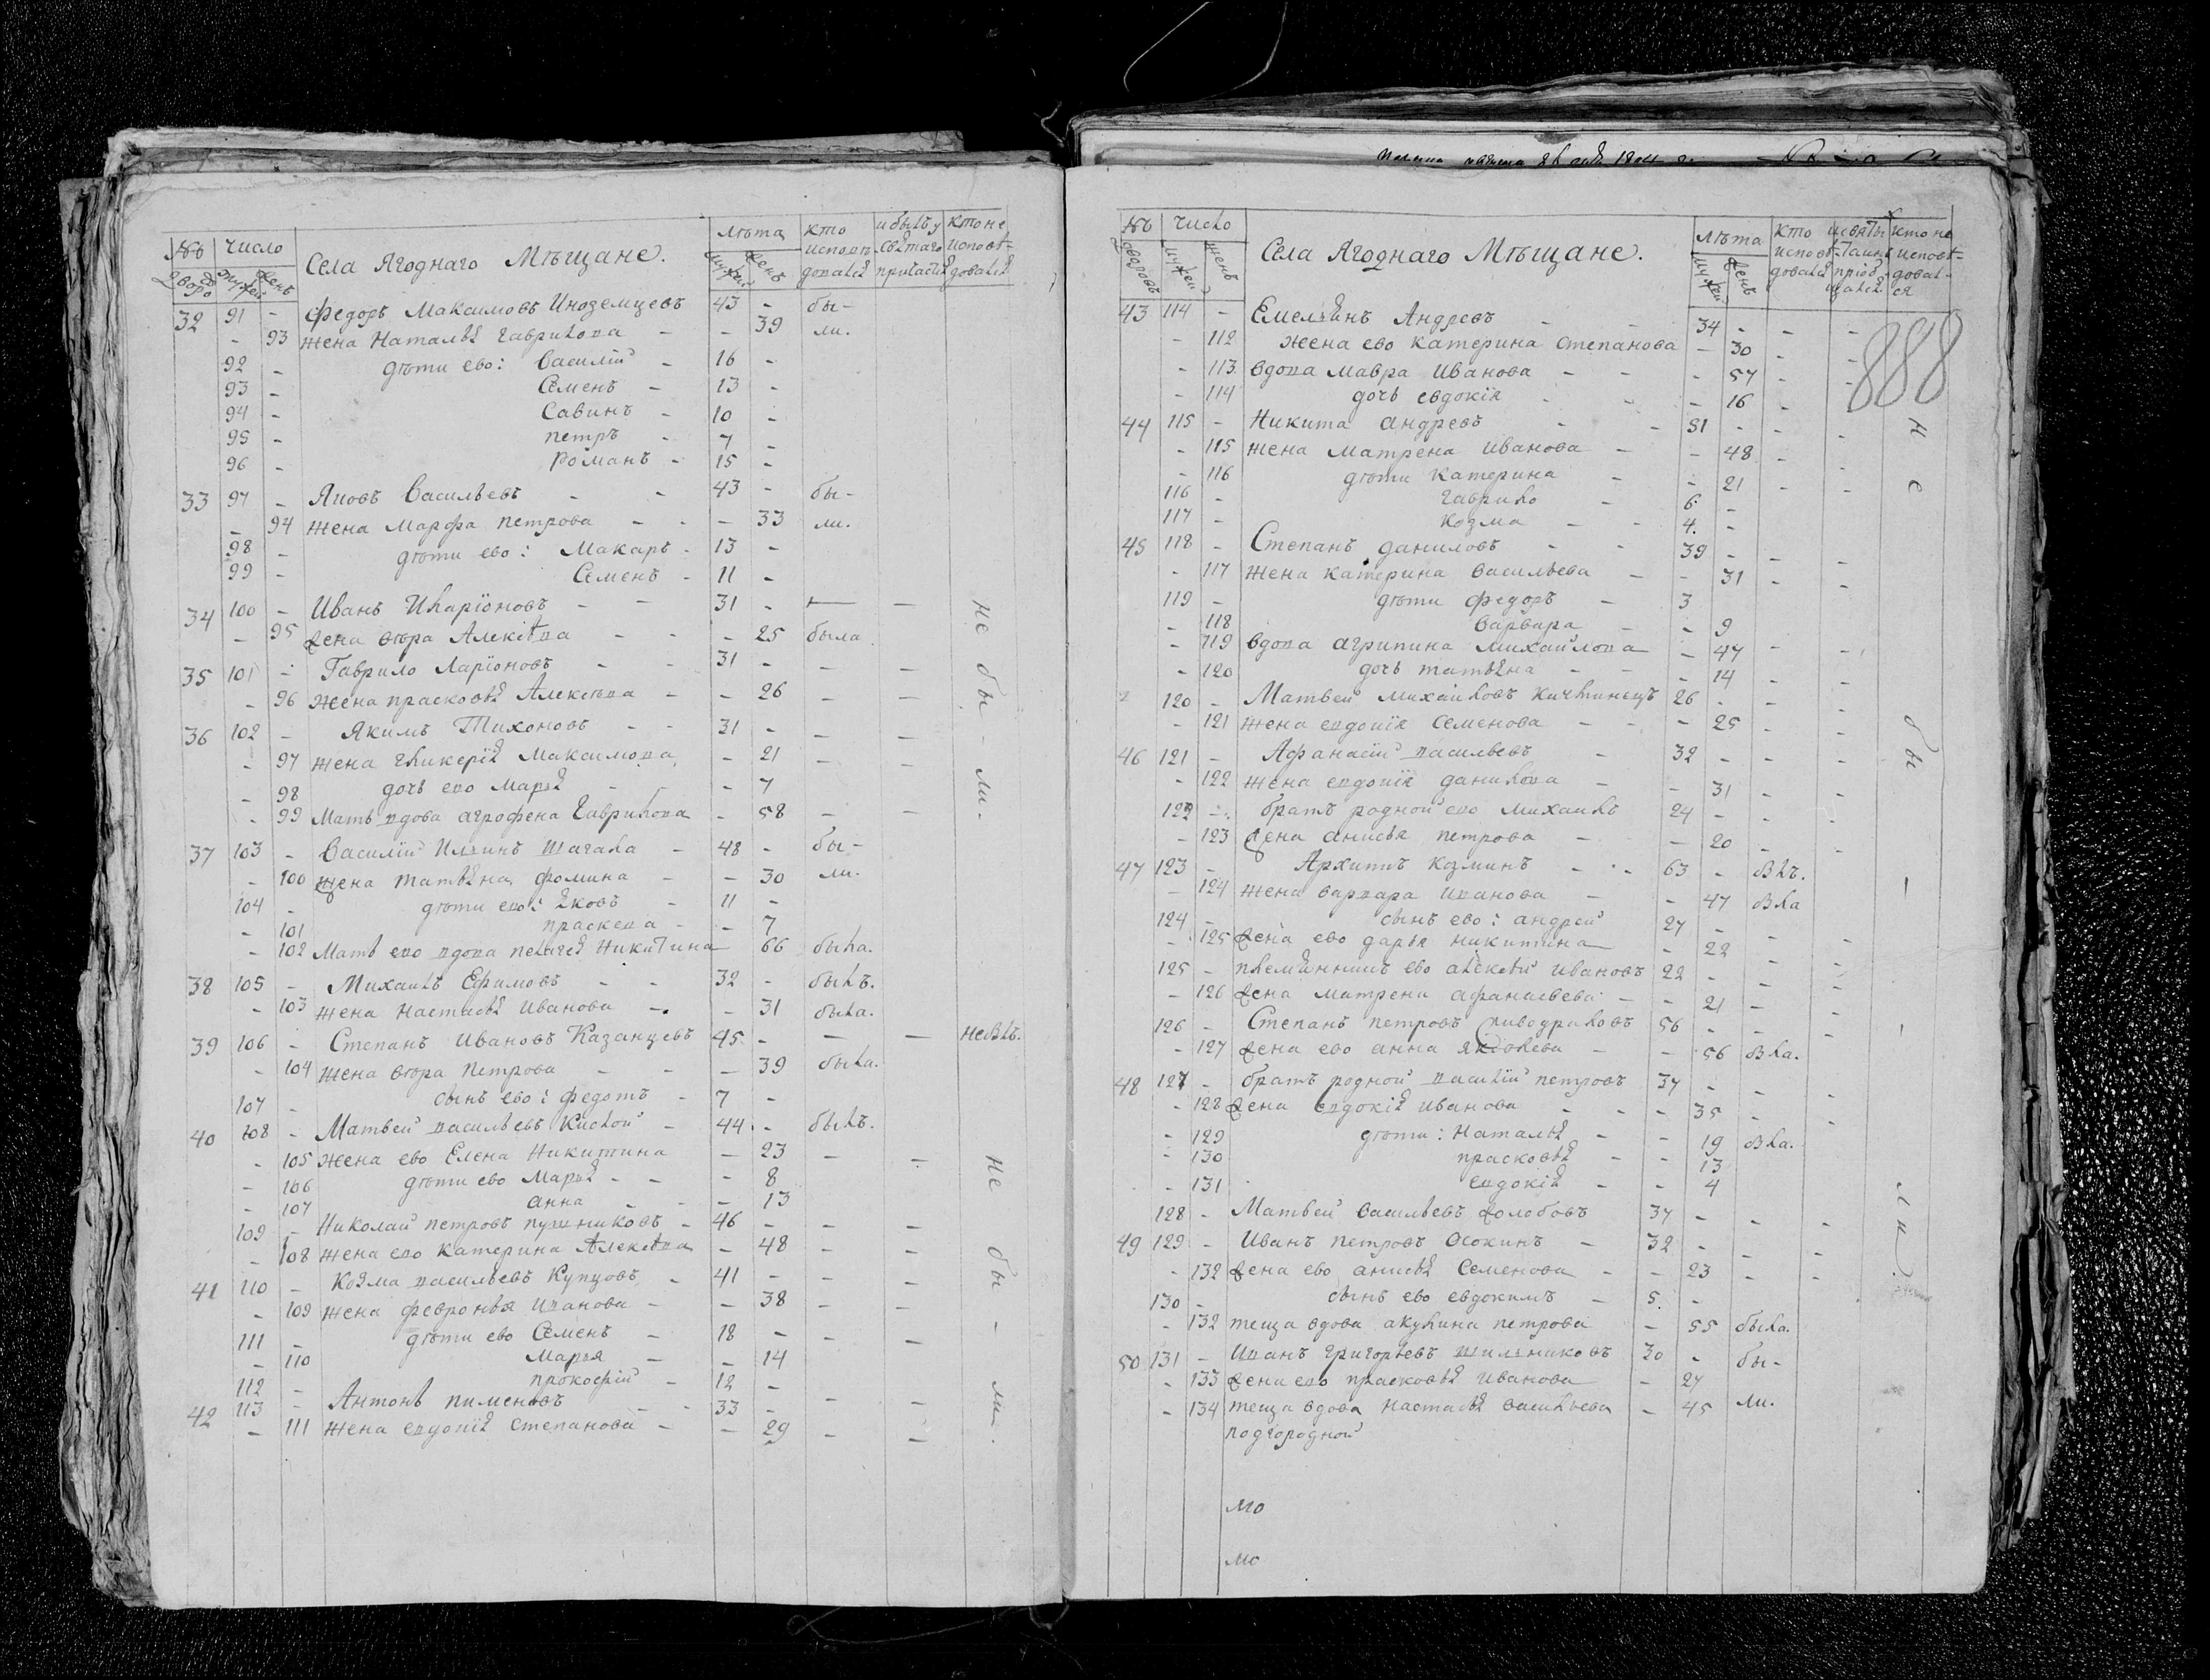 №ъ Число Села Ягоднаго Мѣщане. лѣта кто исповѣдовался и былъ у святаго причастия кто не исповѣдовался
дворовъ мужей женъ мужей женъ
32 91 - Федоръ Максимовъ Иноземцевъ 43 - бы-
- 93 жена Наталья Гаврилова - - 39 ли.
92 - дѣти ево: Василiй - 16 -
93 - Семенъ - 13 -
94 - Савинъ - 10 -
95 - петръ - 7 -
96 - Романъ - 15 -
33 97 - Яковъ Васильевъ - - 43 - бы-
- 94 жена Марфа петрова - - - 33 ли.
98 - дѣти ево: Макаръ - 13 -
99 - Семенъ - 11 -
34 100 - Иванъ Иларiоновъ - - 31 - - -
- 95 жена вѣра Алексѣва - - - 25 была
35 101 - Гаврило Ларiоновъ - - 31 - - -
- 96 жена прасковья Алексѣва - - 26 - -
36 102 - Якимъ Тихоновъ - - 31 - - -
- 97 жена гликерiя Максимова - 21 - -
- 98 дочь ево Марья - - - 7
- 99 Мать вдова агрофена Гаврилова - 58 - -
37 103 - Василiй Ильинъ шагала - 48 - бы-
- 100 жена татьяна фомина - - 30 ли.
104 - дѣти ево: яковъ - 11 -
- 101 праскева - - 7
- 102 Мать ево вдова пелагея Никитина 66 была.
38 105 - Михаилъ Ефимовъ - - 32 - былъ.
- 103 жена Настасья Иванова - - 31 была.
39 106 - Степанъ Ивановъ Казанцевъ 45 - - - небылъ.
- 104 жена вѣра Петрова - - - 39 была.
107 - сынъ ево: федотъ - 7 -
40 108 - Матвей васильевъ Кислой - 44 - былъ.
- 105 жена ево Елена Никитина - 23 - -
- 106 дѣти ево Марья - - - 8
- 107 анна - - - 13
109 - Николай петровъ пушниковъ - 46 - - -
- 108 жена ево катерина Алексѣва - 48 - -
41 110 - Козма васильевъ Купцовъ - 41 - - -
- 109 жена февронья иванова - - 38 - -
111 - дѣти ево Семенъ - 18 - - -
- 110 Марья - - 14
112 - прокофiй - 12 -
42 113 - Антонъ пименовъ - - 33 - - -
- 111 жена евдокiя степанова - - 29 - -
не бы-ли.
не бы-ли.
№ъ число Села Ягоднаго Мѣщане. лѣта кто исповѣдовался и святы таинъ прiобщался кто не исповѣдовался
дворовъ мужей женъ мужей женъ
888
43 114 - Емельянъ Андревъ - - 34 - - -
- 112 жена ево катерина степанова - 30 - -
- 113 вдова мавра иванова - - - 57 - -
- 114 дочь евдокiя - - - 16 -
44 115 - Никита андревъ - - 51 - - -
- 115 жена матрена иванова - - 48 - -
- 116 дѣти катерина - - 21 - -
116 - гаврило - 6 -
117 - козма - - 4. -
45 118 - Степанъ даниловъ - - 39 - - -
- 117 жена катерина васильева - - 31 - -
119 - дѣти федоръ - 3
- 118 варвара - - 9
- 119 вдова агрипина михайлова - 47 - -
- 120 дочь татьяна - - - 14 - -
120 - Матвей михаиловъ 26 - - -
- 121 жена евдокiя семенова - - - 25 - -
46 121 - Афанасiй васильевъ - 32 - - -
- 122 жена евдокiя данилова - - 31 - -
122 - братъ родной ево михаилъ 24 - - -
- 123 жена анисья петрова - - 20 - -
47 123 - Архипъ козминъ - - 63 - былъ.
- 124 жена варвара иванова - - 47 бла
124 - сынъ ево: андрей 27 - - -
- 125 жена ево дарья никитина - 22 - -
125 - племянникъ ево алексѣй ивановъ 22 - - -
- 126 жена матрена афанасьева - - 21 - -
126 - Степанъ петровъ 56 - - -
- 127 жена ево анна яковлева - - 56 бла.
48 127 - братъ родной василiй петровъ 37 - - -
- 128 жена евдокiя иванова - - - 35 - -
- 129 дѣти: Наталья - - 19 бла.
- 130 прасковья - - 13
- 131 евдокiя - - 4
128 - Матвей васильевъ 37 - - -
49 129 - Иванъ петровъ Осокинъ - 32 - - -
- 132 жена ево анисья Семенова - - 23 - -
130 - сынъ ево евдокимъ - 5. -
- 132 теща вдова акулина петрова - 55 была.
50 131 - Иванъ григорьевъ шильниковъ 30 - бы-
- 133 жена ево прасковья иванова - 27
- 134 теща вдова настасья васильева - 45 ли.
подгородной
мо
мо
не бы - ли.